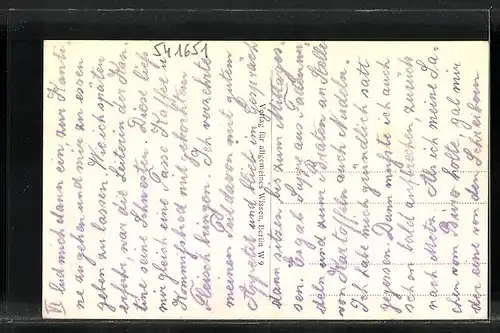 541651
II lud mich dann ein, zur Kanti-
ne zu gehen und mir zu essen
geben zu lassen. Wie ich später
erfuhr, war die Leiterin der Kan-
tine seine Schwester. Diese ließ
mir gleich eine Tasse Kaffee u.
Kommißbrod mit Leberwurst
bringen. Ich verzehrte
meinen Teil davon mit gutem
Appetit und blieb im Gespräch
dann sitzen bis zum Mittages-
sen. Es gab Suppe aus Fadennu-
deln und zum Braten an Stelle
von Kartoffeln auch Nudeln.
Ich habe mich gründlich satt
gegessen. Dann mußte ich auch
schon bald aufbrechen, zurück
nach Als ich meine Sa-
chen vom Büro holte, gab mir
der eine von den Schreibern
Verlag für allgemeines Wissen, Berlin W 9